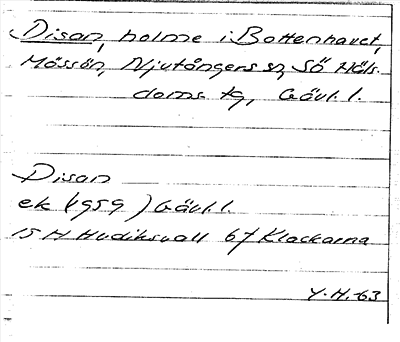 Disan, holme i Bottenhavet,
Mössön, Njutångers sn, Sö Häls.
doms. tg, Gävl. l.
Disan
ek (1959) Gävl. l.
15 H Hudiksvall 67 Klackarna
Y.H.-63